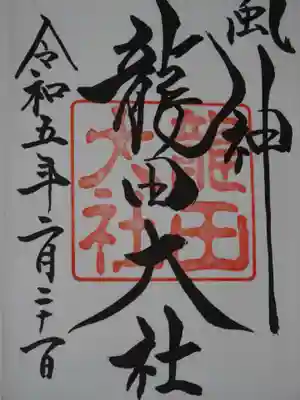 風神
龍田大社
令和五年二月二十一日
龍田
大社